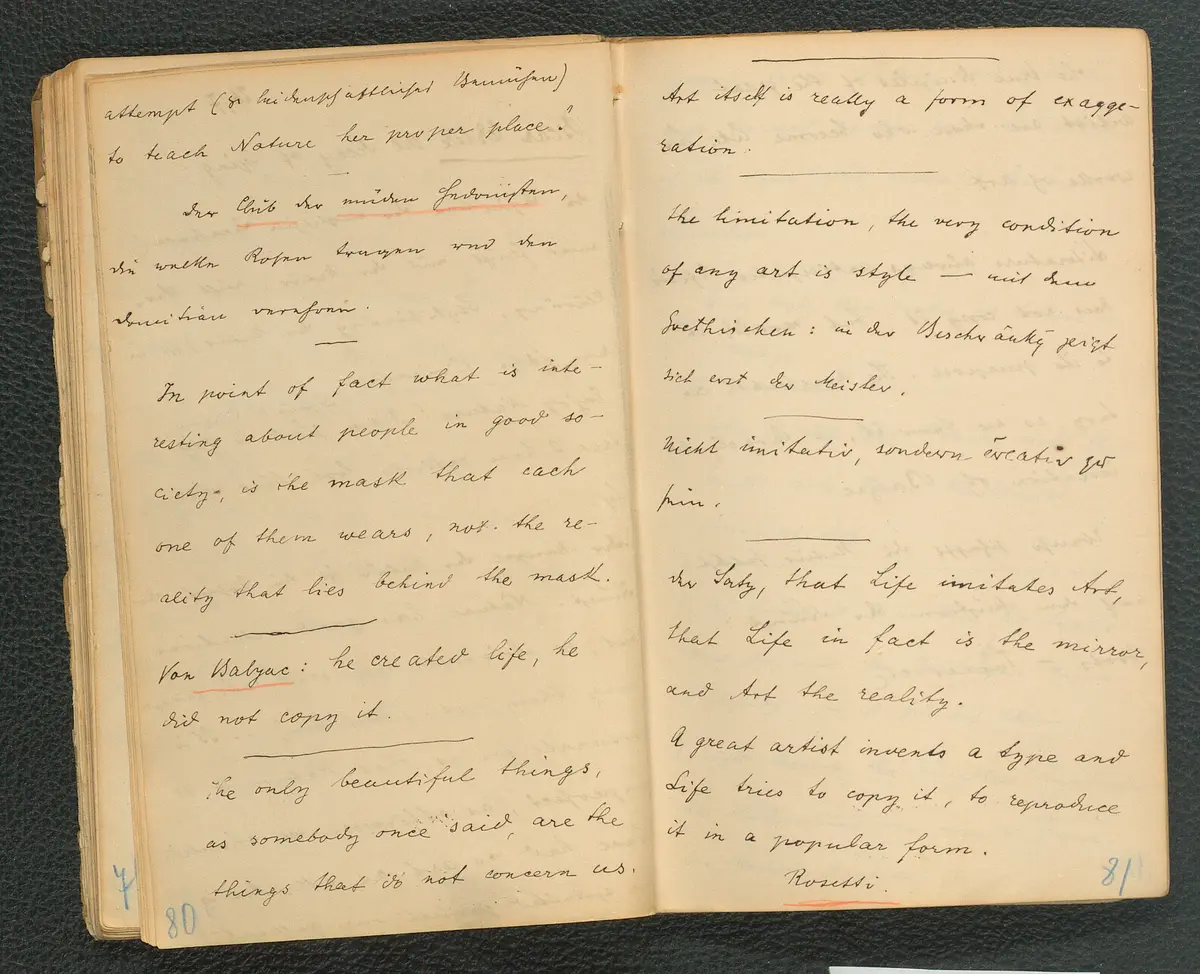 attempt (& leidenschaftliches Bemühen)
to teach Nature her proper place.
Der Club der müden Hedonisten,
die welke Rosen trugen und den
Domitian verehren.
In point of fact what is inte-
resting about people in good so-
ciety, is the mask that each
one of them wears, not the re-
ality that lies behind the mask.
Von Balzac: he created life, he
did not copy it.
The only beautiful things,
as somebody once said, are the
things that do not concern us.
80
7
Art itself is really a form of exagge-
ration.
the limitation, the very condition
of any art is style — mit dem
Goethischen: in der Beschränkg zeigt
sich erst der Meister.
Nicht imitativ, sondern creativ zu
sein.
der Satz, that Life imitates Art,
that Life in fact is the mirror,
and Art the reality.
A great artist invents a type and
Life tries to copy it, to reproduce
it in a popular form.
Rosetti.
81